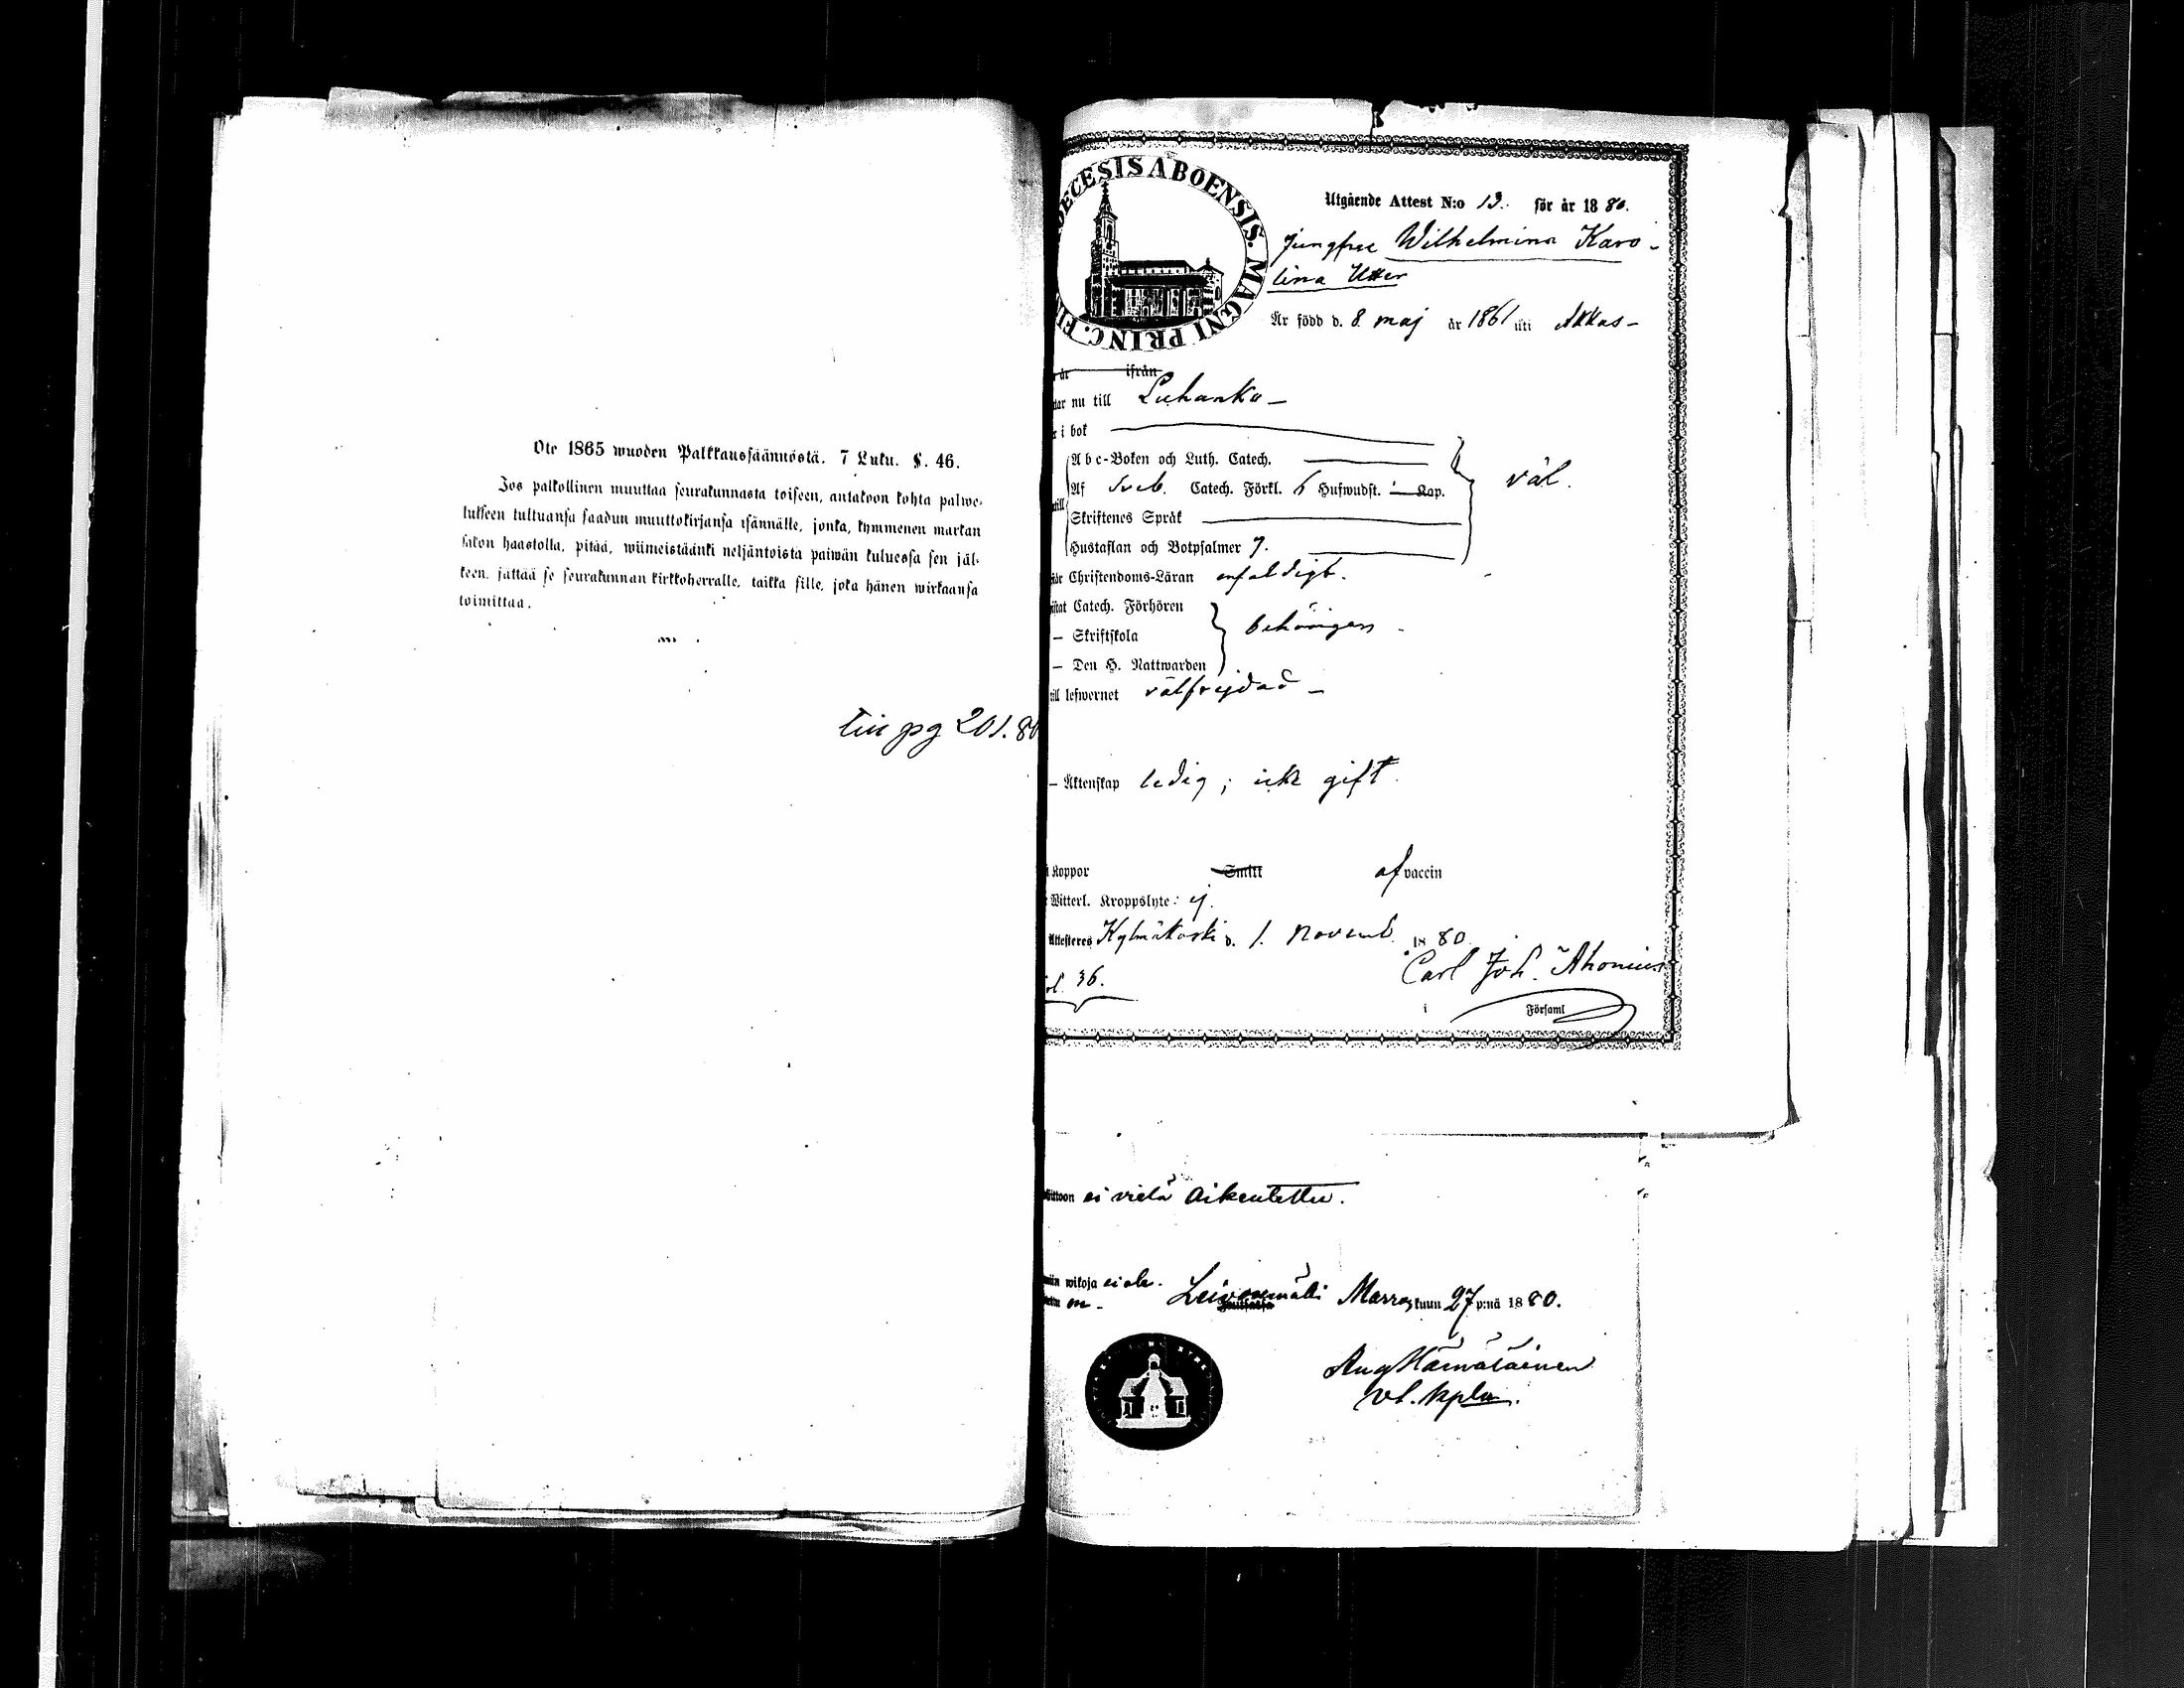 Ote 1865 wuoden Palkkaussäännöstä. 7 Luku. §. 46.
Jos palkollinen muuttaa seurakunnasta toiseen, antakoon kohta palwe-
lukseen tultuansa saadun muuttokirjansa isännälle, jonka, kymmenen markan
sakon haastolla, pitää, wiimeistäänki neljäntoista päiwän kuluessa sen jäl-
keen, jättää se seurakunnan kirkkoherralle, taikka sille, joka hänen wirkaansa
toimittaa.
pg 201. 80
ECESIS ABOENSIS. MAGNI PRINC. FI
Utgående Attest N:o 13. för år 1880.
Jungfru Wilhelmina Karo-
lina Utter
Är född d. 8 maj år 1861 uti Akkas-
år ifrån
dar nu till Luhanka-
r i bok
Abc-Boken och Luth. Catech.
väl.
Af Sveb. Catech. Förkl. 6 Hufwudst. Kap.
Skriftenes Språk
Hustaflan och Botpsalmer 7.
Christendoms-Läran enfaldigt.
Catech. Förhören
— Skriftskola
behörigen
— Den H. Nattwarden
till lefwernet välfrejdad -
— Äktenskap ledig; icke gift.
Koppor Smitt af vaccin
Witterl. Kroppslyte: ej.
Attesteres Kylmäkoski d. 1. Novemb. 1880.
Carl Joh. Ahonius
36.
i Församl
ei vielä aikeutettu.
wikoja ei ole.
on - Leivonmäki Marraskuun 27 p:nä 1880.
Aug Hämäläinen
vt. kpln.